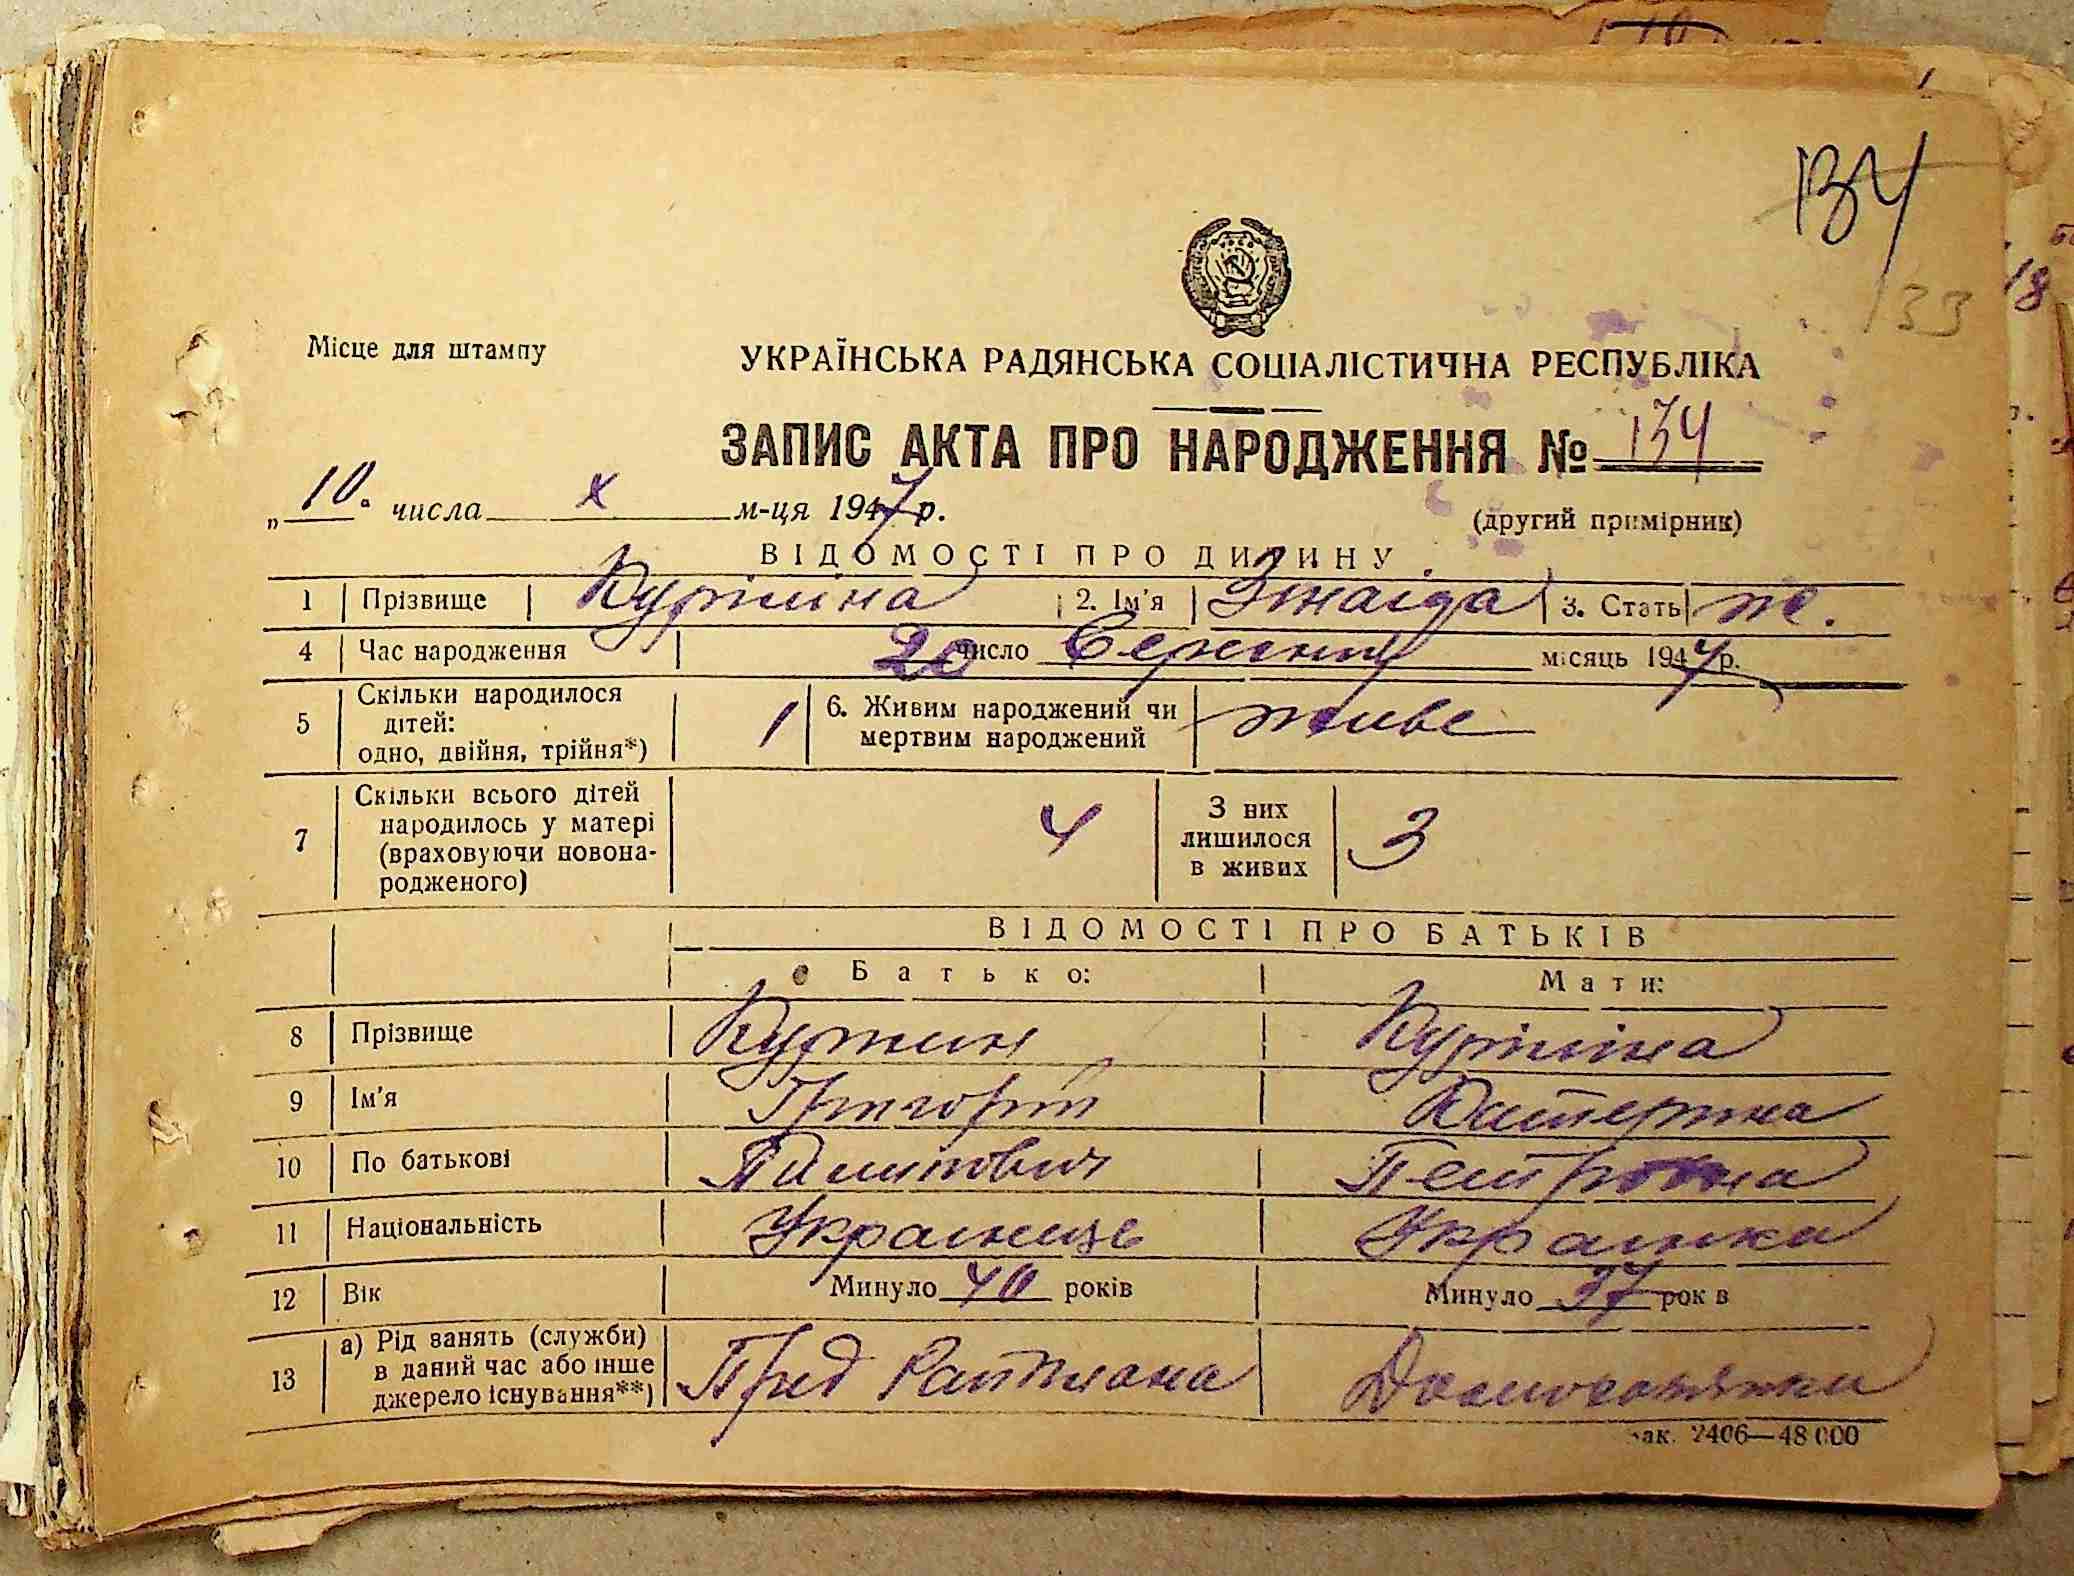 134
133
18
Місце для штампу
УКРАЇНСЬКА РАДЯНСЬКА СОЦІАЛІСТИЧНА РЕСПУБЛІКА
ЗАПИС АКТА ПРО НАРОДЖЕННЯ № 134
„10“ числа X м-ця 1947 р.
(другий примірник)
ВІДОМОСТІ ПРО ДИТИНУ
1 Прізвище 2. Ім'я Зінаїда 3. Стать ж.
4 Час народження 20 число Серпня місяць 1947 р.
5 Скільки народилося дітей: одно, двійня, трійня*) 1 6. Живим народжений чи мертвим народжений живе
7 Скільки всього дітей народилось у матері (враховуючи новона-родженого) 4 З них лишилося в живих 3
ВІДОМОСТІ ПРО БАТЬКІВ
Батько: Мати:
8 Прізвище
9 Ім'я Григорій Катерина
10 По батькові Пилипович Петровна
11 Національність Українець Українка
12 Вік Минуло 40 років Минуло 37 рок в
13 а) Рід занять (служби) в даний час або інше джерело існування**) Домохозяйка
зак. 2406—48 000